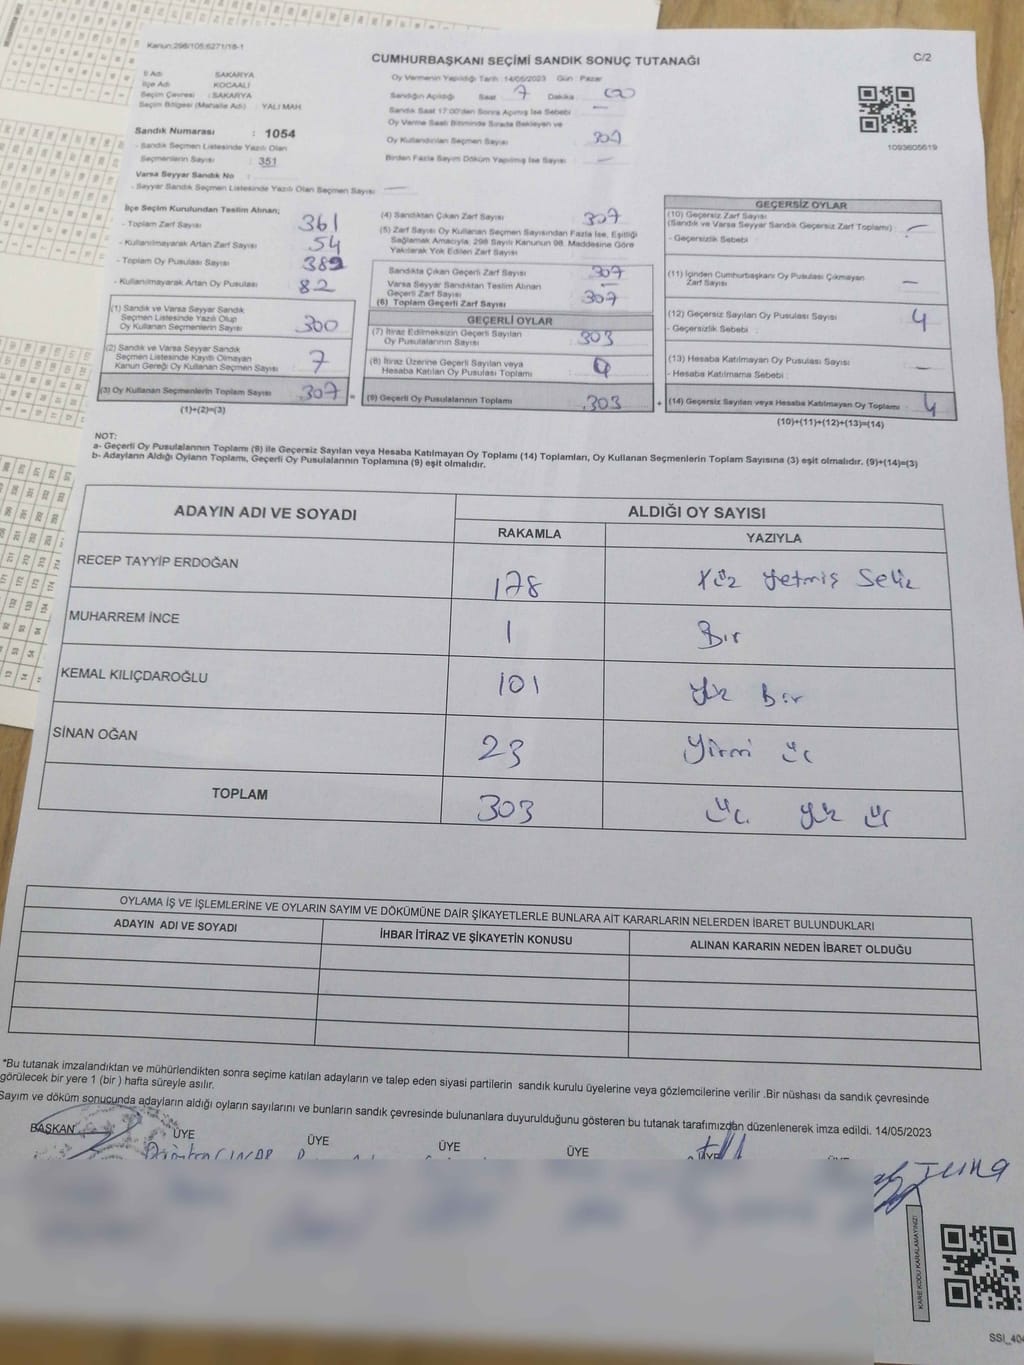 Kanun:298/105;6271/18-1
C/2
CUMHURBAŞKANI SEÇİMİ SANDIK SONUÇ TUTANAĞI
İl Adı SAKARYA
İlçe Adı KOCAALİ
Seçim Çevresi : SAKARYA
Seçim Bölgesi (Mahalle Adı) : YALI MAH.
Sandık Numarası : 1054
- Sandık Seçmen Listesinde Yazılı Olan
Seçmenlerin Sayısı : 351
Varsa Seyyar Sandık No :
- Seyyar Sandık Seçmen Listesinde Yazılı Olan Seçmen Sayısı —
Oy Vermenin Yapıldığı Tarih :14/05/2023 Gün : Pazar
Sandığın Açıldığı Saat 7 Dakika 00
Sandık Saat 17:00'den Sonra Açılmış İse Sebebi —
Oy Verme Saati Bitiminde Sırada Bekleyen ve
Oy Kullandırılan Seçmen Sayısı 307
Birden Fazla Sayım Döküm Yapılmış İse Sayısı —
1093605619
İlçe Seçim Kurulundan Teslim Alınan;
- Toplam Zarf Sayısı 361
- Kullanılmayarak Artan Zarf Sayısı 54
- Toplam Oy Pusulası Sayısı 389
- Kullanılmayarak Artan Oy Pusulası 82
(1) Sandık ve Varsa Seyyar Sandık
Seçmen Listesinde Yazılı Olup
Oy Kullanan Seçmenlerin Sayısı 300
(2) Sandık ve Varsa Seyyar Sandık
Seçmen Listesinde Kayıtlı Olmayan
Kanun Gereği Oy Kullanan Seçmen Sayısı 7
(3) Oy Kullanan Seçmenlerin Toplam Sayısı 307 =
(1)+(2)=(3)
(4) Sandıktan Çıkan Zarf Sayısı 307
(5) Zarf Sayısı Oy Kullanan Seçmen Sayısından Fazla İse, Eşitliği
Sağlamak Amacıyla, 298 Sayılı Kanunun 98. Maddesine Göre
Yakılarak Yok Edilen Zarf Sayısı
Sandıkta Çıkan Geçerli Zarf Sayısı 307
Varsa Seyyar Sandıktan Teslim Alınan
Geçerli Zarf Sayısı —
(6) Toplam Geçerli Zarf Sayısı 307
GEÇERLİ OYLAR
(7) İtiraz Edilmeksizin Geçerli Sayılan
Oy Pusulalarının Sayısı 303
(8) İtiraz Üzerine Geçerli Sayılan veya
Hesaba Katılan Oy Pusulası Toplamı
(9) Geçerli Oy Pusulalarının Toplamı 303 +
GEÇERSİZ OYLAR
(10) Geçersiz Zarf Sayısı
(Sandık ve Varsa Seyyar Sandık Geçersiz Zarf Toplamı) —
- Geçersizlik Sebebi
(11) İçinden Cumhurbaşkanı Oy Pusulası Çıkmayan
Zarf Sayısı —
(12) Geçersiz Sayılan Oy Pusulası Sayısı 4
- Geçersizlik Sebebi :
(13) Hesaba Katılmayan Oy Pusulası Sayısı —
- Hesaba Katılmama Sebebi :
(14) Geçersiz Sayılan veya Hesaba Katılmayan Oy Toplamı 4
(10)+(11)+(12)+(13)=(14)
NOT:
a- Geçerli Oy Pusulalarının Toplamı (9) ile Geçersiz Sayılan veya Hesaba Katılmayan Oy Toplamı (14) Toplamları, Oy Kullanan Seçmenlerin Toplam Sayısına (3) eşit olmalıdır. (9)+(14)=(3)
b- Adayların Aldığı Oyların Toplamı, Geçerli Oy Pusulalarının Toplamına (9) eşit olmalıdır.
ADAYIN ADI VE SOYADI ALDIĞI OY SAYISI
RAKAMLA YAZIYLA
RECEP TAYYİP ERDOĞAN 178 Yüz Yetmiş Sekiz
MUHARREM İNCE 1 Bir
KEMAL KILIÇDAROĞLU 101 Yüz Bir
SİNAN OĞAN 23 Yirmi üç
TOPLAM 303 üç yüz üç
OYLAMA İŞ VE İŞLEMLERİNE VE OYLARIN SAYIM VE DÖKÜMÜNE DAİR ŞİKAYETLERLE BUNLARA AİT KARARLARIN NELERDEN İBARET BULUNDUKLARI
ADAYIN ADI VE SOYADI İHBAR İTİRAZ VE ŞİKAYETİN KONUSU ALINAN KARARIN NEDEN İBARET OLDUĞU
*Bu tutanak imzalandıktan ve mühürlendikten sonra seçime katılan adayların ve talep eden siyasi partilerin sandık kurulu üyelerine veya gözlemcilerine verilir .Bir nüshası da sandık çevresinde
görülecek bir yere 1 (bir ) hafta süreyle asılır.
Sayım ve döküm sonucunda adayların aldığı oyların sayılarını ve bunların sandık çevresinde bulunanlara duyurulduğunu gösteren bu tutanak tarafımızdan düzenlenerek imza edildi. 14/05/2023
BAŞKAN ÜYE ÜYE ÜYE ÜYE ÜYE
KARE KODU KARALAMAYINIZ!